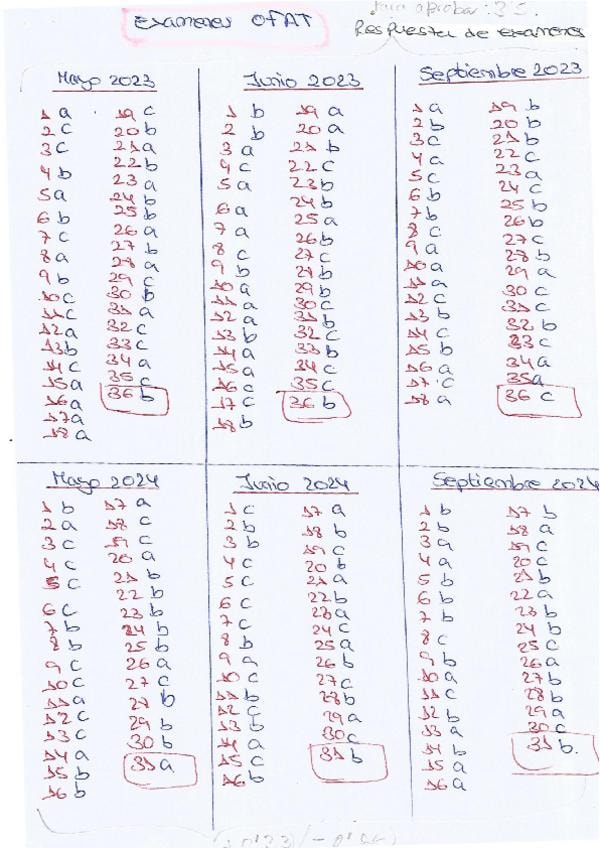 para aprobar: 35.
Exámenes OFAT
Respuesta de exámenes
Mayo 2023
1 a
2 c
3 c
4 b
5 a
6 b
7 c
8 a
9 b
10 c
11 c
12 a
13 b
14 c
15 a
16 a
17 a
18 a
19 c
20 b
21 a
22 b
23 a
24 b
25 b
26 a
27 b
28 a
29 c
30 b
31 a
32 c
33 c
34 a
35 c
36 b
Junio 2023
1 b
2 b
3 a
4 c
5 a
6 a
7 a
8 c
9 b
10 a
11 a
12 a
13 b
14 a
15 a
16 c
17 c
18 b
19 a
20 a
21 b
22 c
23 b
24 b
25 a
26 b
27 c
28 b
29 b
30 c
31 b
32 c
33 b
34 c
35 c
36 b
Septiembre 2023
1 a
2 b
3 c
4 a
5 c
6 b
7 b
8 c
9 a
10 a
11 a
12 c
13 b
14 c
15 b
16 a
17 c
18 a
19 b
20 b
21 b
22 c
23 a
24 c
25 b
26 b
27 c
28 b
29 a
30 c
31 c
32 b
33 c
34 a
35 a
36 c
Mayo 2024
1 b
2 a
3 c
4 c
5 c
6 c
7 b
8 b
9 c
10 c
11 a
12 c
13 c
14 a
15 b
16 b
17 a
18 c
19 c
20 a
21 b
22 b
23 b
24 b
25 b
26 a
27 c
28 b
29 b
30 b
31 a
Junio 2024
1 c
2 b
3 b
4 c
5 c
6 c
7 c
8 b
9 a
10 c
11 b
12 c
13 b
14 a
15 c
16 b
17 a
18 b
19 c
20 b
21 a
22 b
23 a
24 c
25 a
26 b
27 c
28 b
29 a
30 c
31 b
Septiembre 2024
1 b
2 b
3 a
4 a
5 b
6 b
7 b
8 c
9 b
10 a
11 c
12 b
13 a
14 b
15 a
16 a
17 b
18 a
19 c
20 c
21 b
22 a
23 b
24 b
25 c
26 a
27 b
28 b
29 a
30 c
31 b.